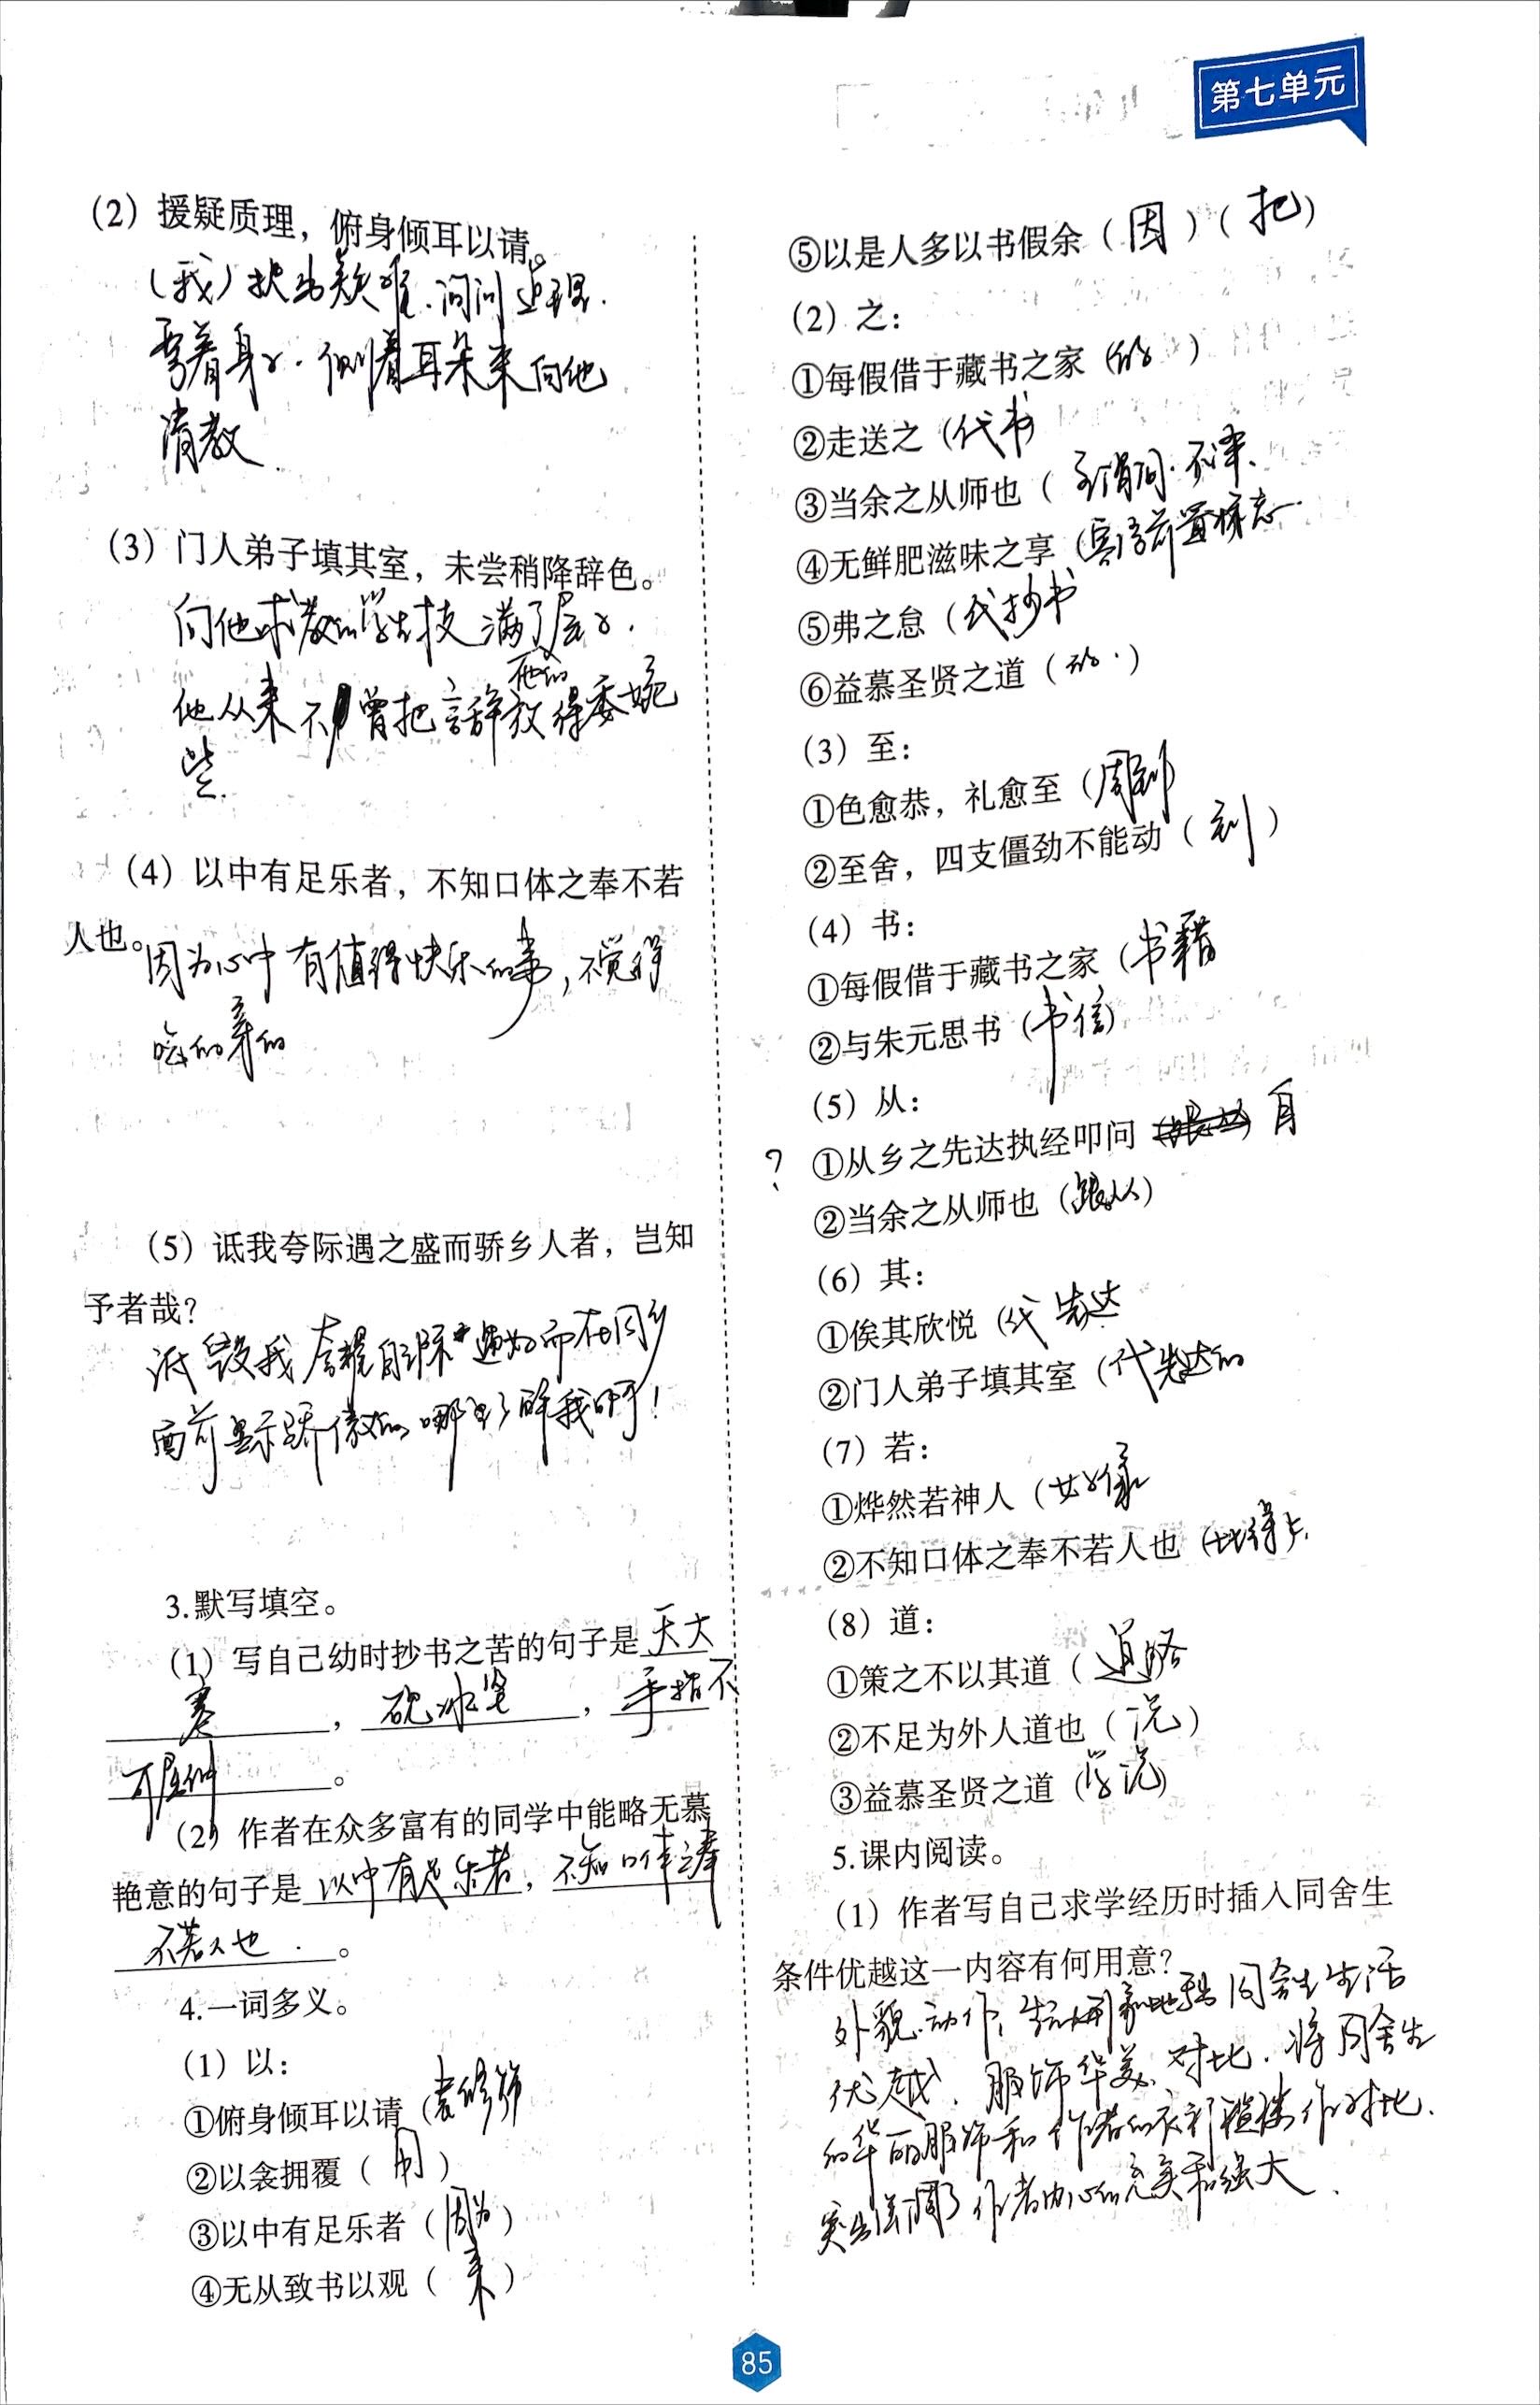 第七单元
（2）援疑质理，俯身倾耳以请。
（我）提出疑难.询问道理.
弯着身子.侧着耳朵来向他
请教
（3）门人弟子填其室，未尝稍降辞色。
向他求教的学生挤满了屋子.
他的
他从来不曾把言辞放得委婉
些.
（4）以中有足乐者，不知口体之奉不若
人也。
因为心中有值得快乐的事，不觉得
吃的穿的
（5）诋我夸际遇之盛而骄乡人者，岂知
予者哉？
诋毁我夸耀自际遇好而在同乡
面前显示骄傲的哪里了解我啊！
3.默写填空。
（1）写自己幼时抄书之苦的句子是天大
寒，砚冰坚，手指不
可屈伸。
（2）作者在众多富有的同学中能略无慕
艳意的句子是以中有足乐者，不知口体之奉
不若人也.。
4.一词多义。
（1）以：
①俯身倾耳以请（表修饰
②以衾拥覆（用）
③以中有足乐者（因为）
④无从致书以观（来）
⑤以是人多以书假余（因）（把）
（2）之：
①每假借于藏书之家（的）
②走送之（代书
③当余之从师也（主谓间.不译.
④无鲜肥滋味之享（宾语前置标志.
⑤弗之怠（代抄书
⑥益慕圣贤之道（的.）
（3）至：
①色愈恭，礼愈至（周到）
②至舍，四支僵劲不能动（到）
（4）书：
①每假借于藏书之家（书籍
②与朱元思书（书信）
（5）从：
? ①从乡之先达执经叩问 自
②当余之从师也（跟从）
（6）其：
①俟其欣悦（代 先达
②门人弟子填其室（代先达的
（7）若：
①烨然若神人（好像
②不知口体之奉不若人也（比得上.
（8）道：
①策之不以其道（道路
②不足为外人道也（说）
③益慕圣贤之道（学说）
5.课内阅读。
（1）作者写自己求学经历时插入同舍生
条件优越这一内容有何用意？
外貌.动作，同舍生生活
优越、服饰华美.对比.将同舍生
的华丽服饰和作者的衣衫褴褛作对比.
突出强调了作者内心的充实和强大.
85